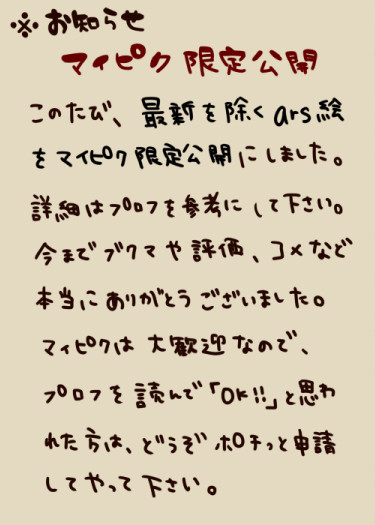 ※お知らせ
マイピク限定公開
このたび、最新を除くars絵
をマイピク限定公開にしました。
詳細はプロフを参考にして下さい。
今までブクマや評価、コメなど
本当にありがとうございました。
マイピクは大歓迎なので、
プロフを読んで「OK!!」と思わ
れた方は、どうぞポチっと申請
してやって下さい。